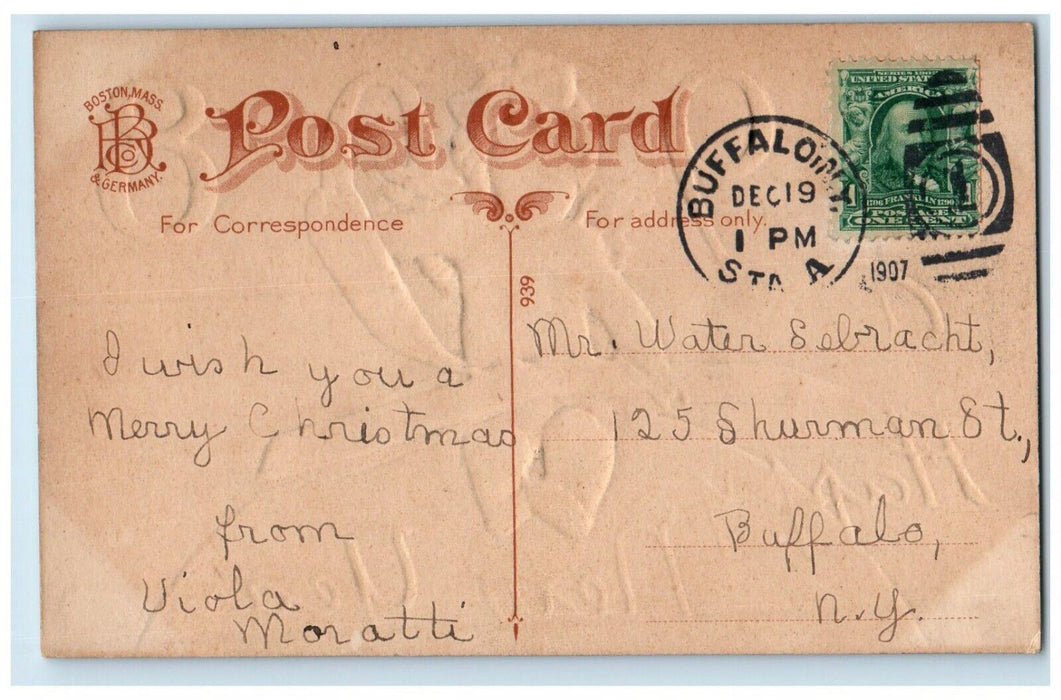 BOSTON, MASS.
& GERMANY.
Post Card
For Correspondence
For address only.
939
BUFFALO, N.Y.
DEC 19
1 PM
STA. A
1907
1
SERIES 1902
UNITED STATES
AMERICA
1706 FRANKLIN 1790
POSTAGE
ONE CENT
I wish you a
Merry Christmas
from
Viola
Moratti
Mr. Water Sebracht,
125 Shurman St.,
Buffalo,
N.Y.